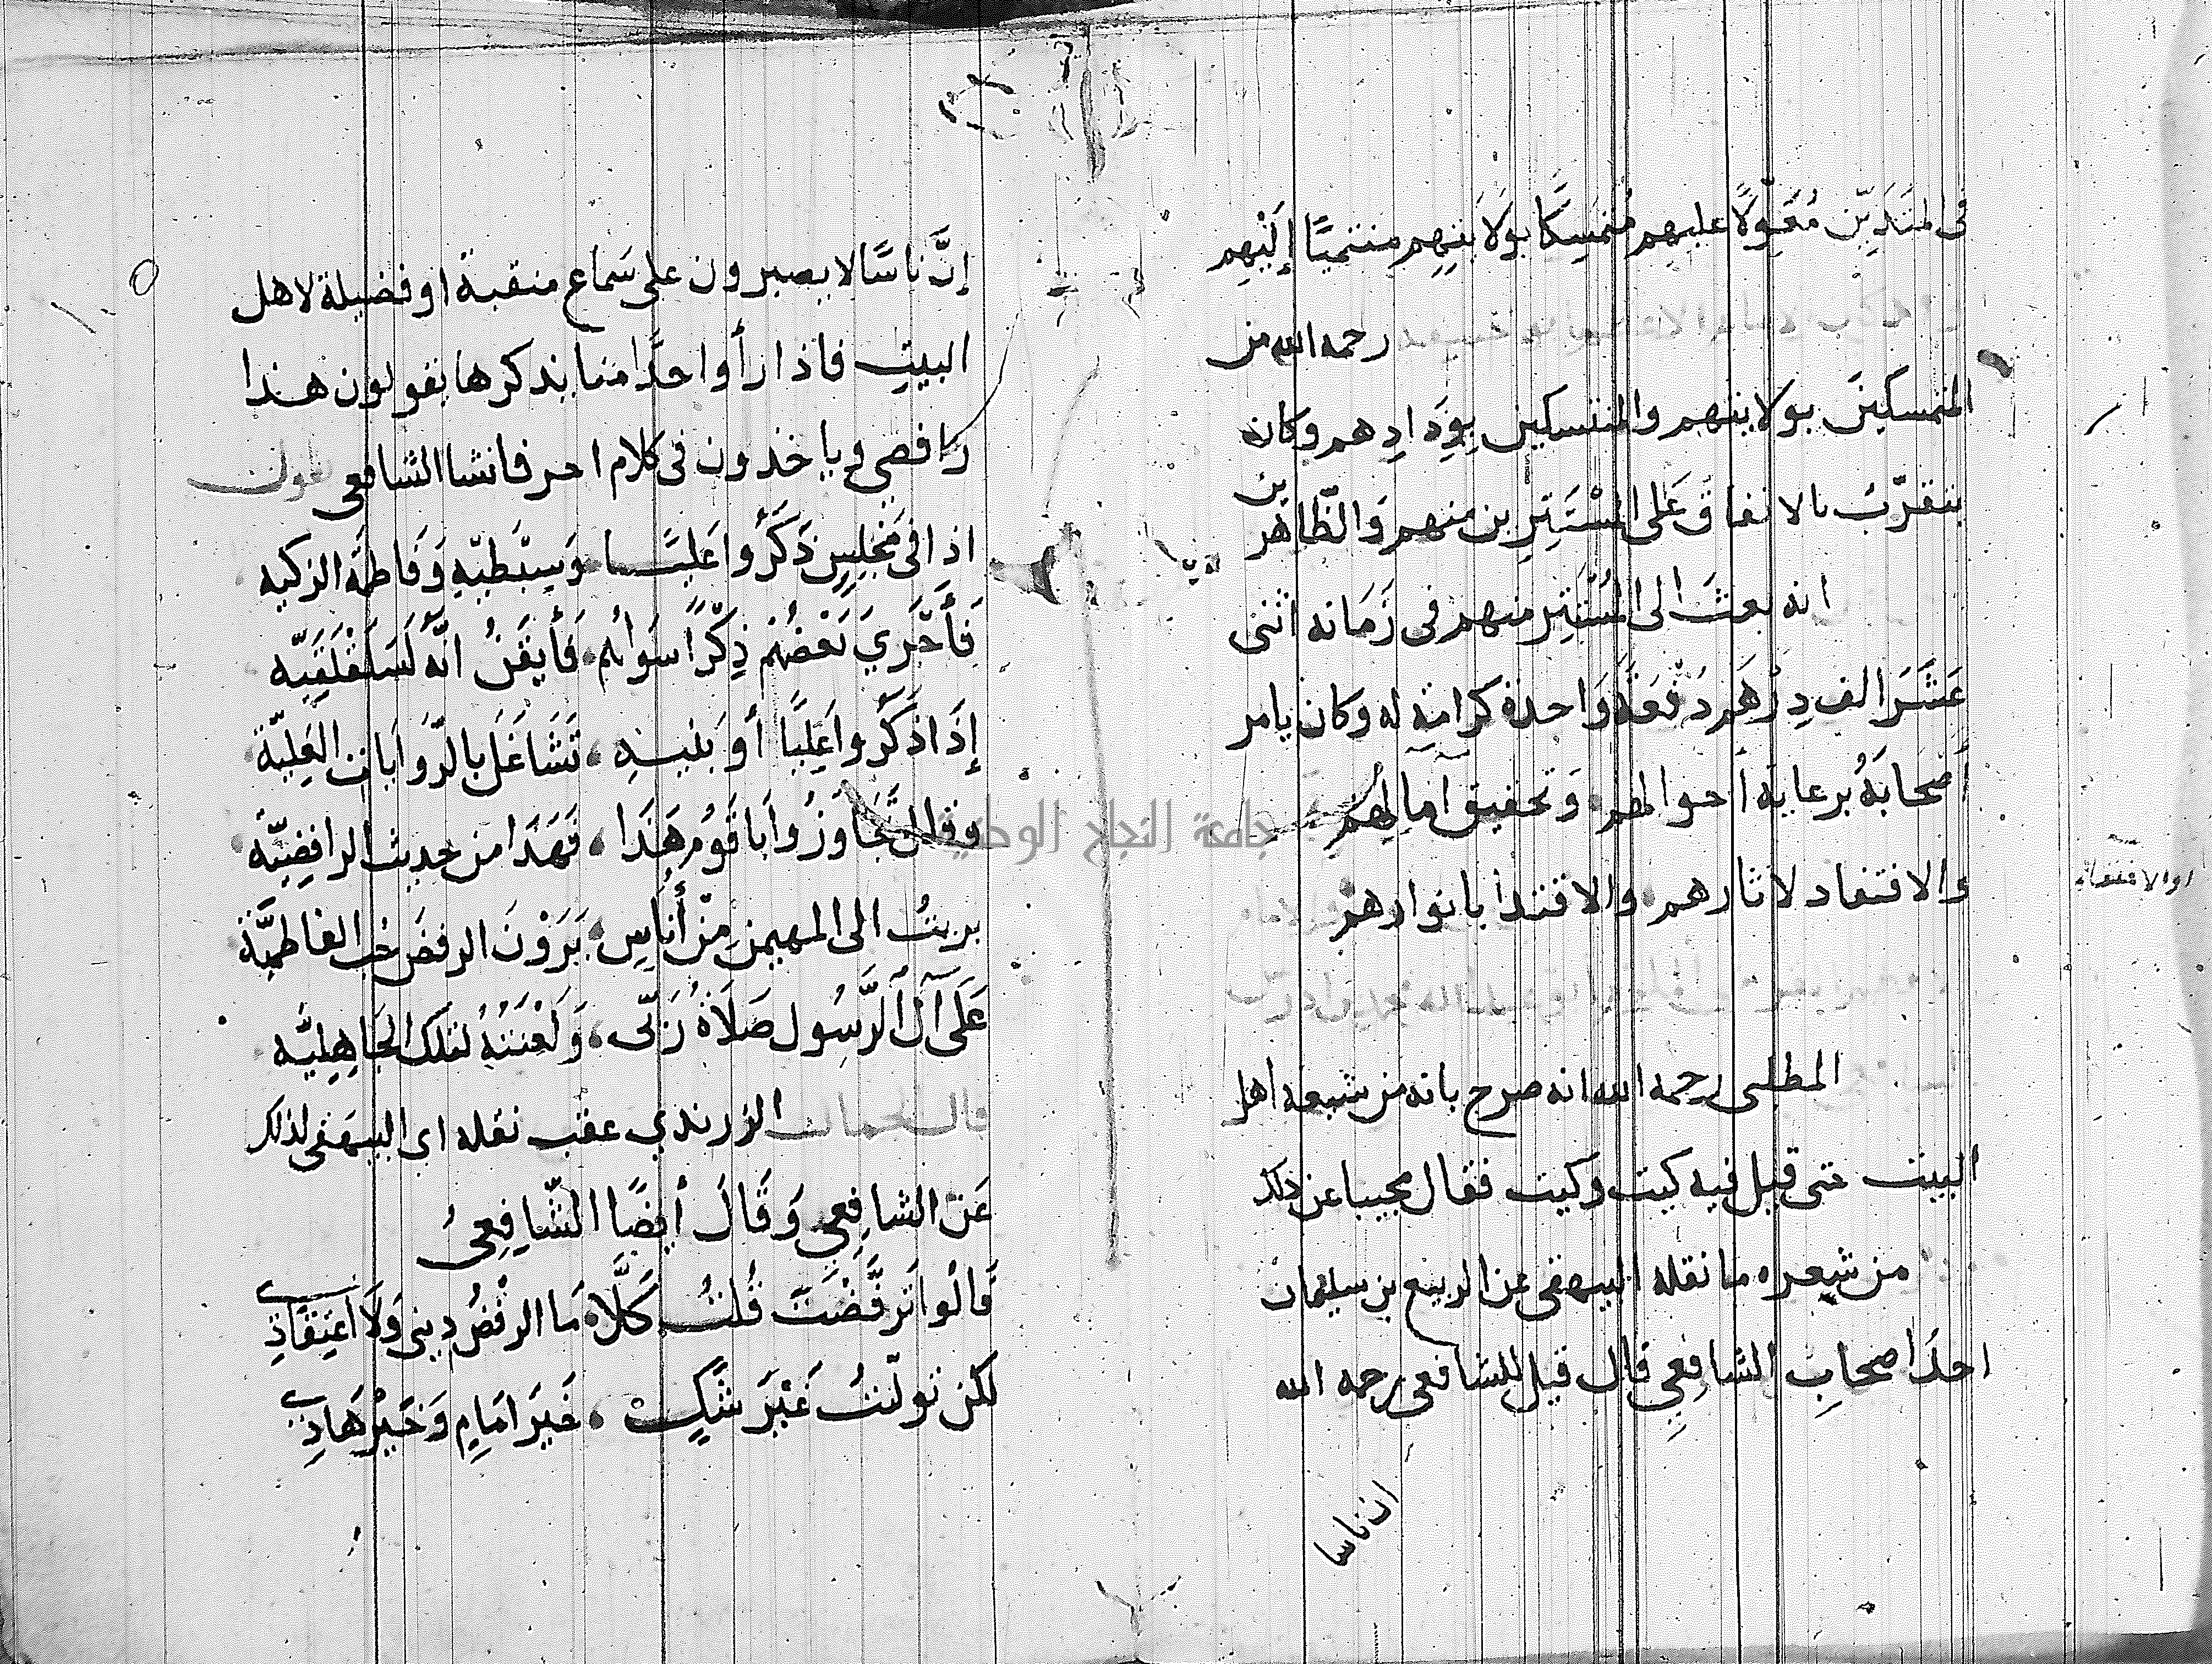 في المتدينين مُعَوِّلًا عليهم مُتمسِّكًا بولايتهم منتميًا إلَيْهِم
رحمه الله من
المتمسكين بولايتهم والمتنسكين بِوِدَادِهم وكان
يتقرّب بالانفاق عَلى المسْتَتِرِين منهم وَالظّاهرين
انه بعث الى المُسْتَتِر منهم في زَمَانه اثنى
عَشَرَ الف دِرْهَم دَفعَةً وَاحدَة كرامة له وكان يامر
أصْحَابَهُ برعاية أحوالهم وَتحقيق آمالِهِم
والاقتفاء لاثارهم والاقتدا بانوارهم
المطلبي رحمه الله انه صرح بانه من شيعة اهل
البيت حتى قيل فيه كيت وكيت فقال مجيبا عن ذلك
من شِعره ما نقله البيهقي عن الربيع بن سليمان
احدَ اصحابِ الشافِعي قال قيل للشافعي رحمه الله
ان ناسا
إنَّ ناسًا لا يصبرون على سَماع منقبة او فضيلة لاهل
البيتِ فاذا رأوا احدًا منا يذكرها يقولون هذا
رافضي وياخذون في كلام اخر فانشا الشافعي يقول
اذا في مَجْلِسٍ ذَكَرُوا عَليًّا وَسِبْطَيْهِ وَفَاطمَةَ الزكيه
فَأَجْرَي بَعْضُهُم ذِكْرًا سَوَاهُم فَأَيقَنُ انَّهُ لَسَلَقْلَقِيّه
إِذَا ذَكَرُوا عَلِيًّا أو بَنيهِ تَشَاغَلَ بالرِّوَايات العَلِيّة
وقال تَجَاوَزُوا يَا قَوْمُ هَذَا فَهَذَا من حديث الرافِضِيّة
بريتُ الى المهيمن مِنْ أُنَاسٍ يَرَوْنَ الرفضَ حُب الفاطميَّة
عَلَى آلِ الرَّسُول صَلَاةُ رَبّي وَلَعْنَتُهُ لتلك الجَاهِليّه
قال الجمال الزرندي عقب نقله اي البيهقي لذلك
عَن الشافِعِي وَقَالَ أيضًا الشّافِعِيُ
قَالُوا تَرفَّضْتَ قُلتُ كَلَّا مَا الرفْضُ دِيني وَلَا اعتِقَادِي
لكن تولّيتُ غَيْرَ شَكٍّ خَيرَ امَامٍ وَخَيْرَ هَادِي
جامعة النجاح الوطنية